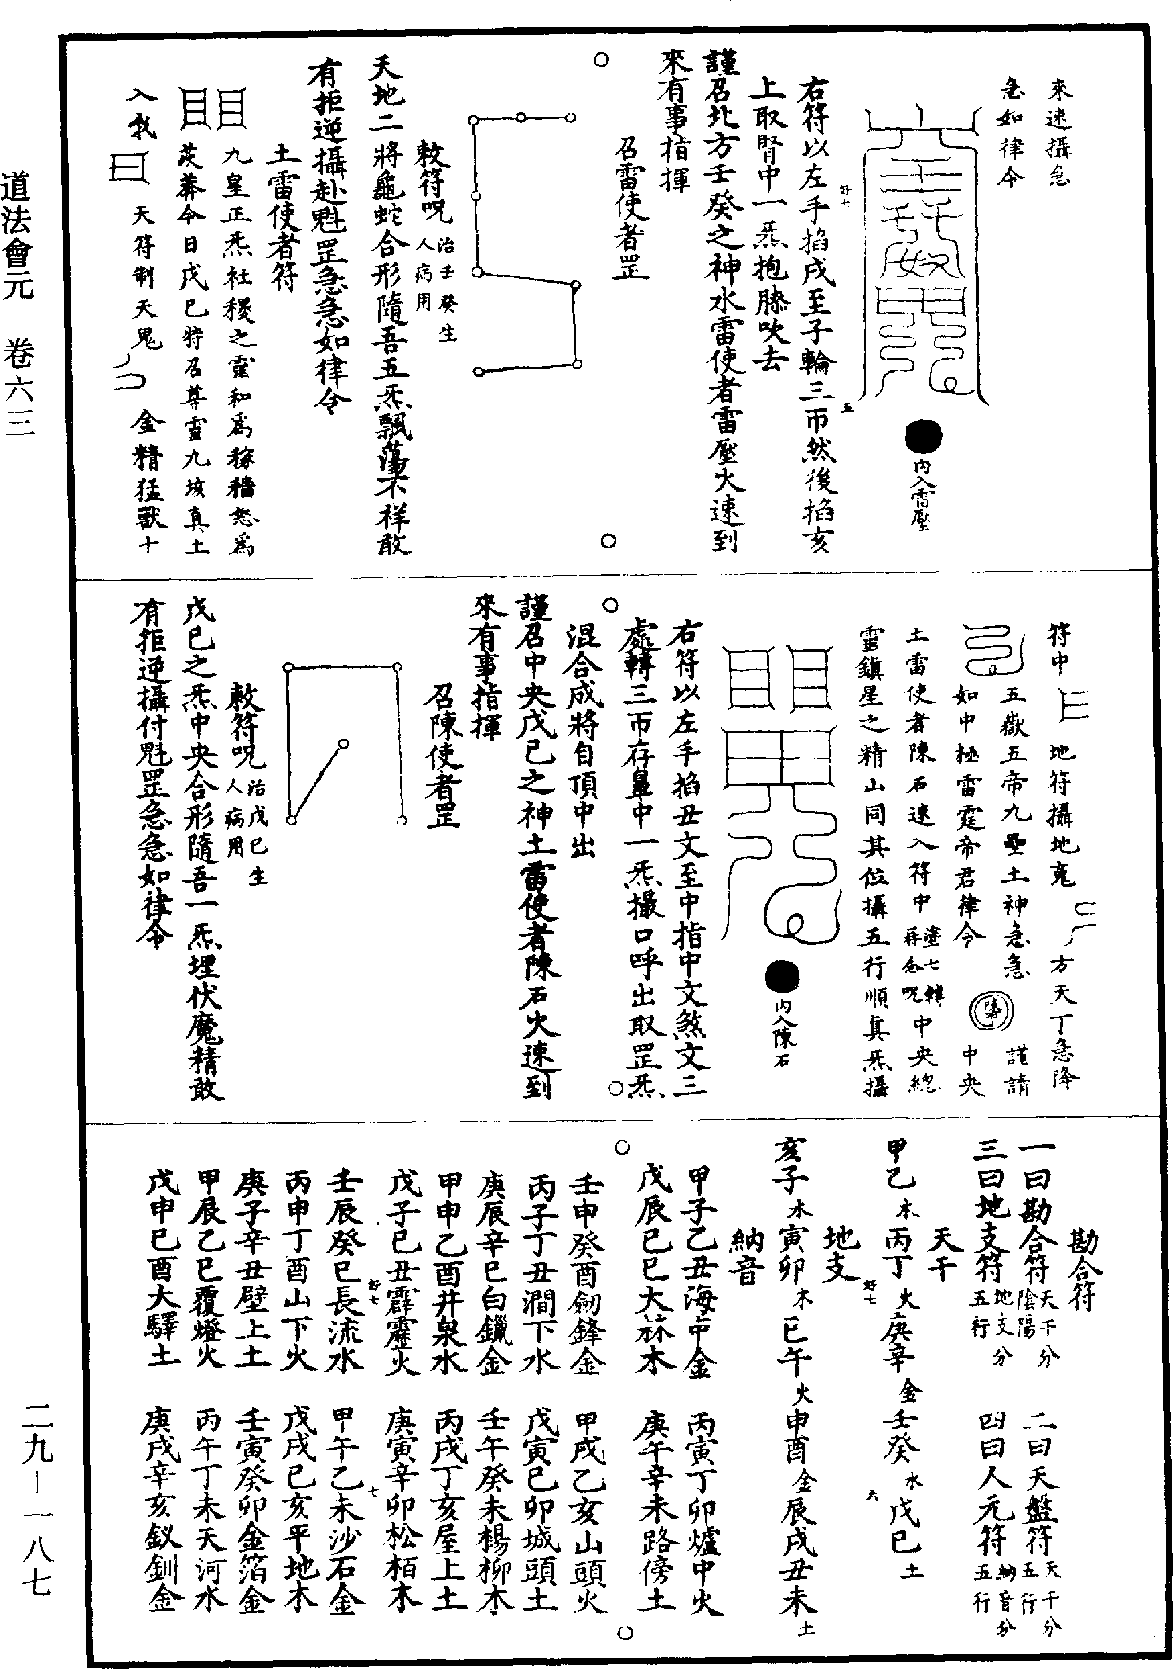 來速攝急
急如律令
內入雷壓
右符以左手掐戌至子輪三帀然後掐亥
上取腎中一炁抱膝吹去
謹召北方壬癸之神水雷使者雷壓火速到
來有事指揮
召雷使者罡
敕符呪治壬癸生人病用
天地二將龜蛇合形隨吾五炁飄蕩不祥敢
有拒逆攝赴魁罡急急如律令
土雷使者符
九皇正炁社稷之靈和爲稼穡怒爲
茨莽今日戊己將召尊靈九垓真土
入我 天符制天鬼 金精猛獸十
符中 地符攝地鬼 方天丁急降
五嶽五帝九壘土神急急 謹請
如中極雷霆帝君律令 中央
土雷使者陳石速入符中塗七轉再念呪中央總
靈鎮星之精山同其位攝五行順真炁攝
內入陳石
右符以左手掐丑文至中指中文煞文三
處轉三帀存鼻中一炁撮口呼出取罡炁
混合成將自頂中出
謹召中央戊己之神土雷使者陳石火速到
來有事指揮
召陳使者罡
敕符呪治戊己生人病用
戊己之炁中央合形隨吾一炁埋伏魔精敢
有拒逆攝付魁罡急急如律令
勘合符
一曰勘合符天干分陰陽 二曰天盤符天干分五行
三曰地支符地支分五行 四曰人元符納音分五行
天干
甲乙木丙丁火庚辛金壬癸水戊己土
地支
亥子木寅卯木巳午火申酉金辰戌丑未土
納音
甲子乙丑海中金 丙寅丁卯爐中火
戊辰己巳大林木 庚午辛未路傍土
壬申癸酉劒鋒金 甲戌乙亥山頭火
丙子丁丑澗下水 戊寅己卯城頭土
庚辰辛巳白鑞金 壬午癸未楊柳木
甲申乙酉井泉水 丙戌丁亥屋上土
戊子己丑霹靂火 庚寅辛卯松栢木
壬辰癸巳長流水 甲午乙未沙石金
丙申丁酉山下火 戊戌己亥平地木
庚子辛丑壁上土 壬寅癸卯金箔金
甲辰乙巳覆燈火 丙午丁未天河水
戊申己酉大驛土 庚戌辛亥釵釧金
道法會元 卷六三
二九－一八七